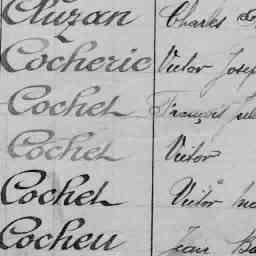 Cluzan Charles
Cocheric Victor Josep
Cochet François Jul
Cochet Victor
Cochet Victor
Cocheu Jean Ba